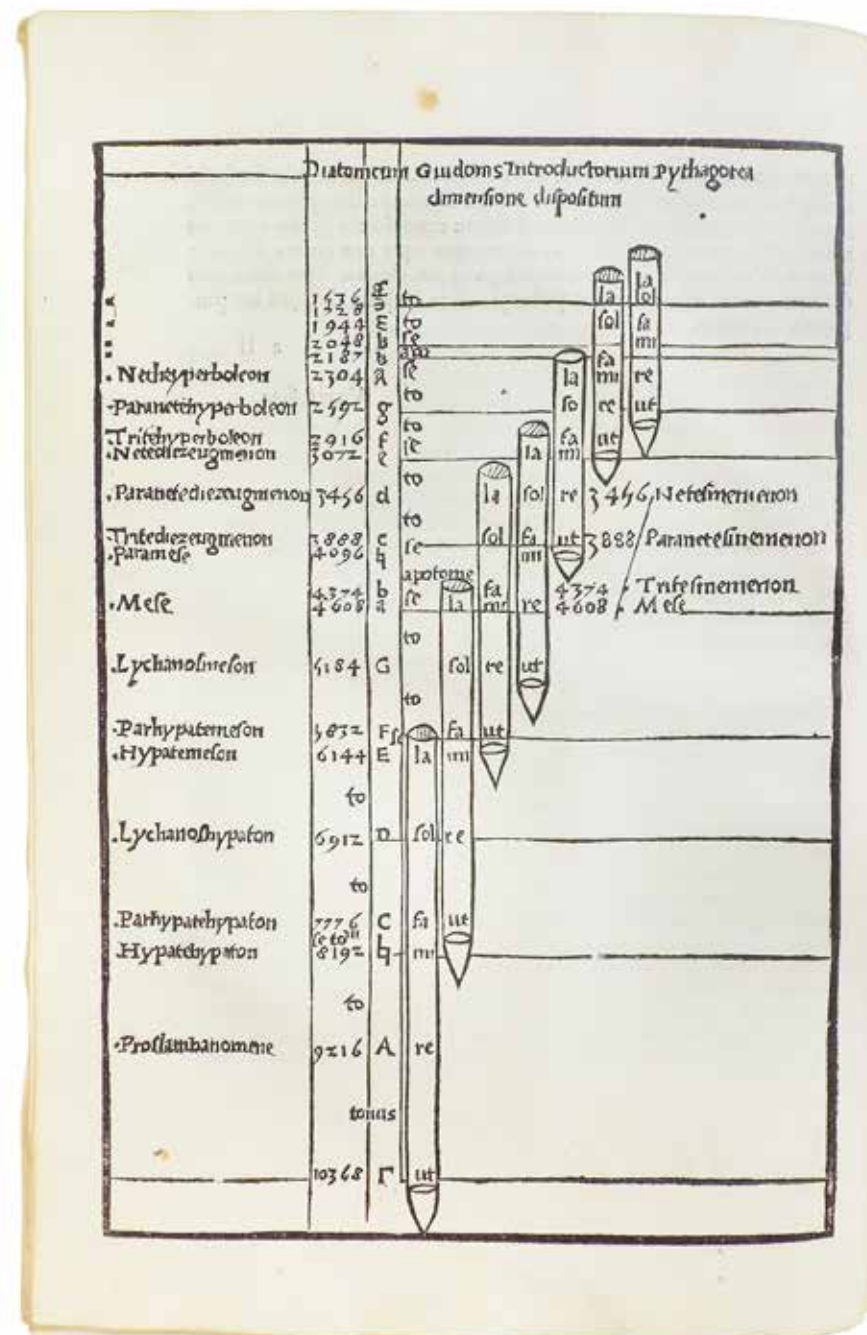 Diatonicum Guidonis Introductorium pythagorea
dimensione dispositum
1536 f la la
1728 sol
1944 E to sol fa
2048 mi
2187 apo fa
. Netehyperboleon 2304 A se la mi re
to
.Paranetehyperboleon 2592 g so re ut
to
.Tritehyperboleon 2916 f se la fa ut
.Netediezeugmenon 3072 e mi
to
.Paranetediezeugmenon 3456 d la sol re 3456 Netesinemenon
to
.Tritediezeugmenon 3888 c se sol fa ut 3888 Paranetesinemenon
.Paramese 4096 ♮ mi
apotome
4374 b fa 4374 . Tritesinemenon
.Mese 4608 a se la mi re 4608 . Mese
to
.Lychanosmeson 5184 G sol re ut
to
.Parhypatemeson 5832 F se fa ut
.Hypatemeson 6144 E la mi
to
.Lychanoshypaton 6912 D sol re
to
.Parhypatehypaton 7776 C fa ut
.Hypatehypaton 8192 ♮ mi
to
.Proslambanomene 9216 A re
tonus
10368 Γ ut